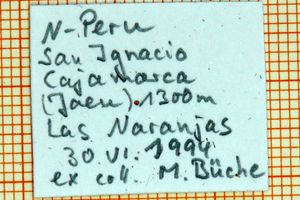 N-Peru
San Ignacio
Cajamarca
(Jaen). 1300m
Las Naranjas
30.VI.1994
ex coll. M. Büche